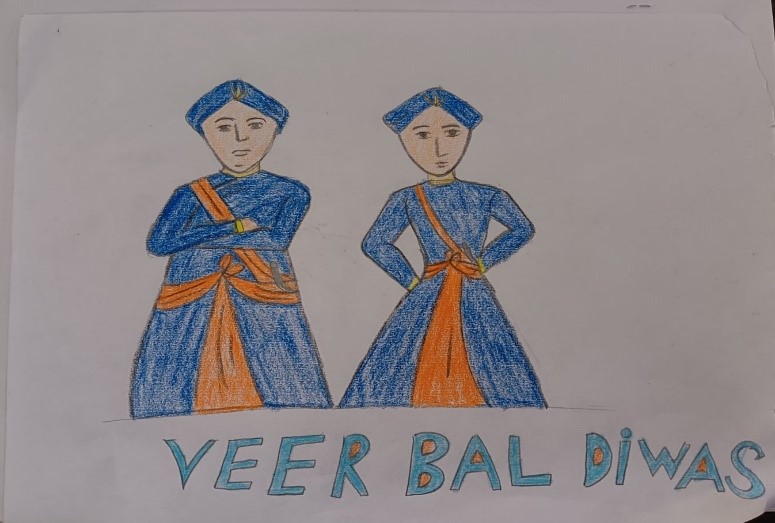 VEER BAL DiWAS